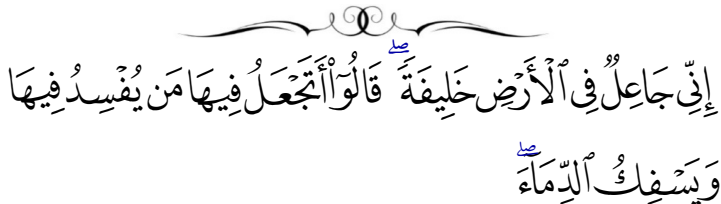 إِنِّي جَاعِلٌ فِى ٱلْأَرْضِ خَلِيفَةً ۖ قَالُوٓا۟ أَتَجْعَلُ فِيهَا مَن يُفْسِدُ فِيهَا
وَيَسْفِكُ ٱلدِّمَآءَ ۖ